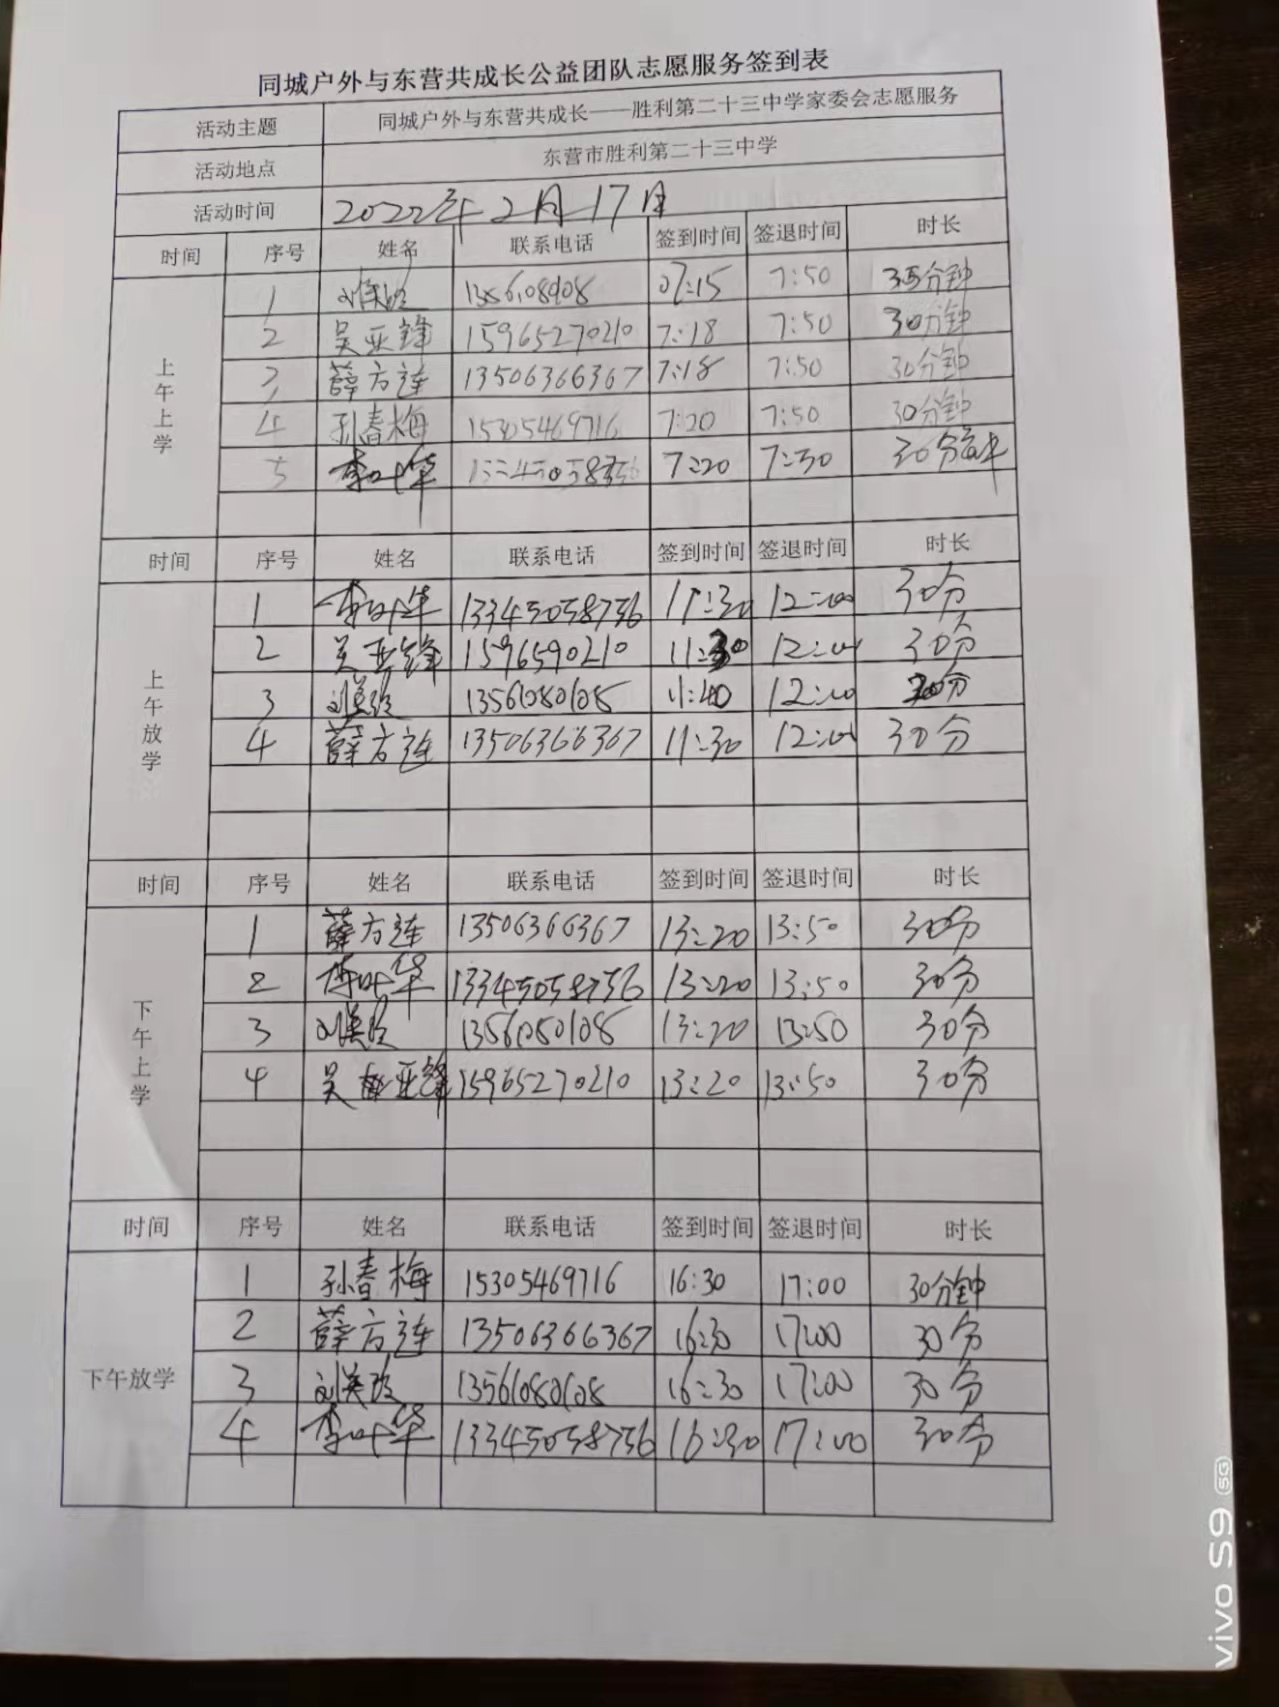 同城户外与东营共成长公益团队志愿服务签到表
活动主题 同城户外与东营共成长——胜利第二十三中学家委会志愿服务
活动地点 东营市胜利第二十三中学
活动时间 2022年2月17日
时间 序号 姓名 联系电话 签到时间 签退时间 时长
上午上学
1 07:15 7:50 35分钟
2 吴亚锋 15965270210 7:18 7:50 30分钟
3 薛方连 13506366367 7:18 7:50 30分钟
4 孙春梅 15305469716 7:20 7:50 30分钟
5 李叶华 7:20 7:50 30分
时间 序号 姓名 联系电话 签到时间 签退时间 时长
上午放学
1 李叶华 13345058756 11:30 12:00 30分
2 吴亚锋 1596590210 11:30 12:00 30分
3 13561080108 11:40 12:00 分
4 薛方连 13506366367 11:30 12:00 30分
时间 序号 姓名 联系电话 签到时间 签退时间 时长
下午上学
1 薛方连 13506366367 13:20 13:50 30分
2 李叶华 13345058756 13:20 13:50 30分
3 13561080108 13:20 13:50 30分
4 吴亚锋 15965270210 13:20 13:50 30分
时间 序号 姓名 联系电话 签到时间 签退时间 时长
下午放学
1 孙春梅 15305469716 16:30 17:00 30分钟
2 薛方连 13506366367 16:30 17:00 30分
3 13561080108 16:30 17:00 30分
4 李叶华 13345058756 16:30 17:00 30分
vivo S9 5G